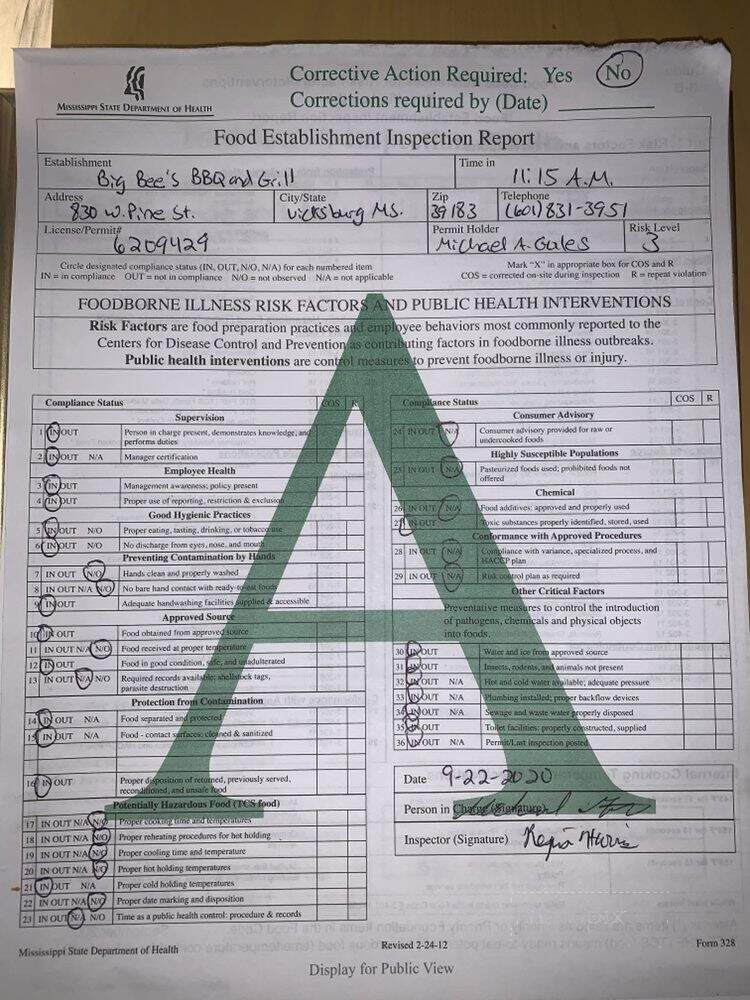 Corrective Action Required: Yes No
Corrections required by (Date)
MISSISSIPPI STATE DEPARTMENT OF HEALTH
Food Establishment Inspection Report
Establishment Big Bee's BBQ and Grill Time in 11:15 A.M.
Address 830 W. Pine St. City/State Vicksburg MS. Zip 39183 Telephone (601) 831-3951
License/Permit# 6209429 Permit Holder Michael A. Gales Risk Level 3
Circle designated compliance status (IN, OUT, N/O, N/A) for each numbered item
IN = in compliance OUT = not in compliance N/O = not observed N/A = not applicable
Mark "X" in appropriate box for COS and R
COS = corrected on-site during inspection R = repeat violation
FOODBORNE ILLNESS RISK FACTORS AND PUBLIC HEALTH INTERVENTIONS
Risk Factors are food preparation practices and employee behaviors most commonly reported to the
Centers for Disease Control and Prevention as contributing factors in foodborne illness outbreaks.
Public health interventions are control measures to prevent foodborne illness or injury.
A
Compliance Status COS R
Supervision
1 IN OUT Person in charge present, demonstrates knowledge, and
performs duties
2 IN OUT N/A Manager certification
Employee Health
3 IN OUT Management awareness; policy present
4 IN OUT Proper use of reporting, restriction & exclusion
Good Hygienic Practices
5 IN OUT N/O Proper eating, tasting, drinking, or tobacco use
6 IN OUT N/O No discharge from eyes, nose, and mouth
Preventing Contamination by Hands
7 IN OUT N/O Hands clean and properly washed
8 IN OUT N/A N/O No bare hand contact with ready-to-eat foods
9 IN OUT Adequate handwashing facilities supplied & accessible
Approved Source
10 IN OUT Food obtained from approved source
11 IN OUT N/A N/O Food received at proper temperature
12 IN OUT Food in good condition, safe, and unadulterated
13 IN OUT N/A N/O Required records available; shellstock tags,
parasite destruction
Protection from Contamination
14 IN OUT N/A Food separated and protected
15 IN OUT N/A Food - contact surfaces: cleaned & sanitized
16 IN OUT Proper disposition of returned, previously served,
reconditioned, and unsafe food
Potentially Hazardous Food (TCS food)
17 IN OUT N/A N/O Proper cooking time and temperatures
18 IN OUT N/A N/O Proper reheating procedures for hot holding
19 IN OUT N/A N/O Proper cooling time and temperature
20 IN OUT N/A N/O Proper hot holding temperatures
21 IN OUT N/A Proper cold holding temperatures
22 IN OUT N/A N/O Proper date marking and disposition
23 IN OUT N/A N/O Time as a public health control: procedure & records
Compliance Status COS R
Consumer Advisory
24 IN OUT N/A Consumer advisory provided for raw or
undercooked foods
Highly Susceptible Populations
25 IN OUT N/A Pasteurized foods used; prohibited foods not
offered
Chemical
26 IN OUT N/A Food additives: approved and properly used
27 IN OUT Toxic substances properly identified, stored, used
Conformance with Approved Procedures
28 IN OUT N/A Compliance with variance, specialized process, and
HACCP plan
29 IN OUT N/A Risk control plan as required
Other Critical Factors
Preventative measures to control the introduction
of pathogens, chemicals and physical objects
into foods.
30 IN OUT Water and ice from approved source
31 IN OUT Insects, rodents, and animals not present
32 IN OUT N/A Hot and cold water available; adequate pressure
33 IN OUT N/A Plumbing installed; proper backflow devices
34 IN OUT N/A Sewage and waste water properly disposed
35 IN OUT Toilet facilities: properly constructed, supplied
36 IN OUT N/A Permit/Last inspection posted
Date 9-22-2020
Person in Charge (Signature)
Inspector (Signature)
Mississippi State Department of Health Revised 2-24-12 Form 328
Display for Public View